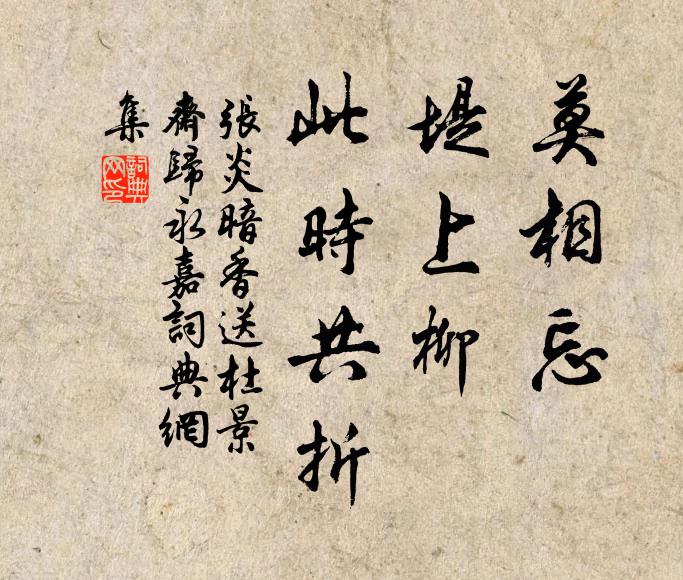 莫相忘
堤上柳
此時共折
張炎暗香送杜景
齋歸永嘉詞典網
集
詞典
网印